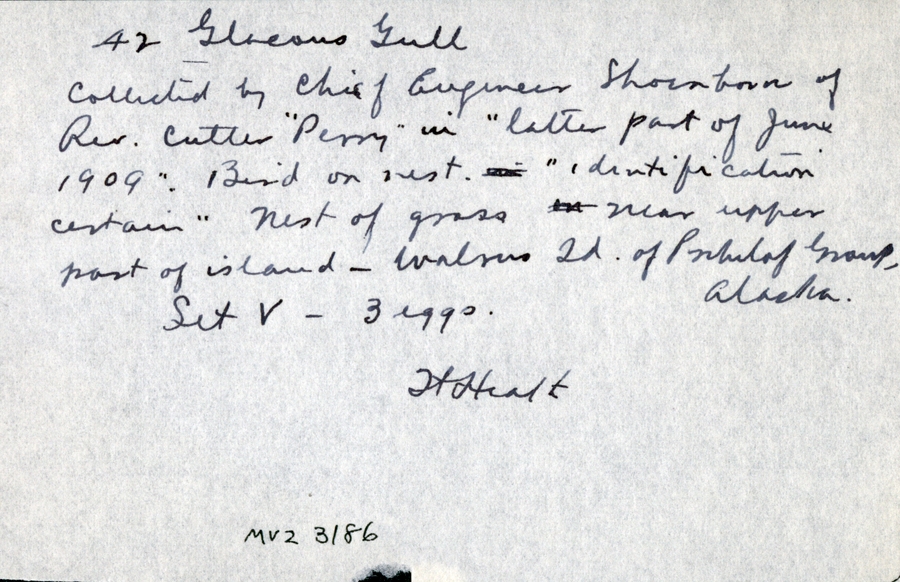 42 Glaceous Gull
Collected by Chief Engineer of
Rev. Cutter "Perry" in "latter part of June
1909". Bird on nest. "identification
certain" Nest of grass near upper
part of island - Walrus Id. of Pribilof Group,
Alaska.
Set V - 3 eggs.
H Heath
MVZ 3186